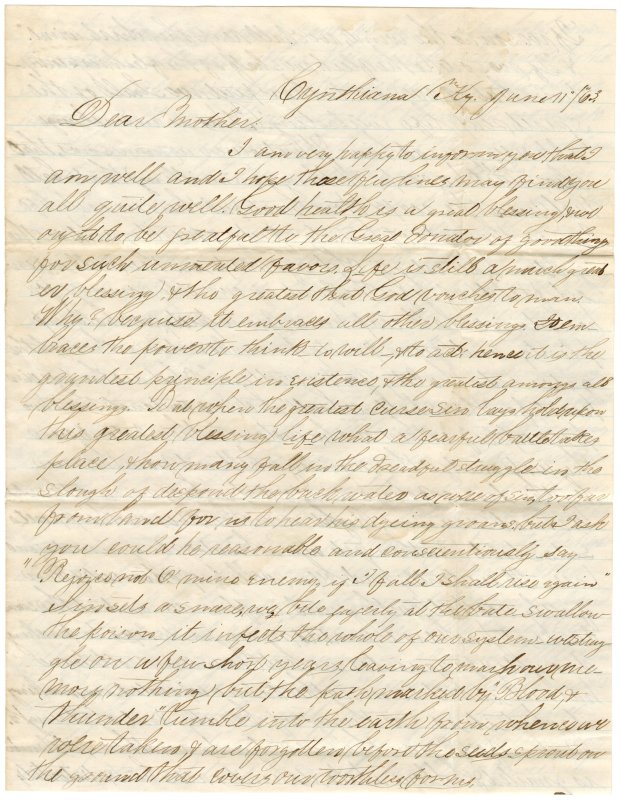 Cynthiana Ky. June 11th/63
Dear Mother.
I am very happy to inform you that I
am well and I hope these few lines may find you
all quite well. Good health is a great blessing, & we
ought to be greatful to the Great dondor of good things
for such unmerited favors. Life is still a much great
er blessing. & the greatest that God vouches to man.
Why? because it embraces all other blessings. It em
braces the power to think to will - & to act. hence it is the
grandest principle in existence & the greatest among all
blessings. But when the greatest curse sin lays hold upon
this greatest blessing life what a fearful battle takes
place, & how many fall in the dreadful struggle in the
slough of despond the back water as well of sin, too far
from land for us to hear his dyeing groans, but I ask
you could he reasonable and conscientiously say
"Rejoice not O' mine enemy if I fall I shall rise again"
Sin sets a snare, we bite eagerly at the bate swallow
the poison it infects the whole of our system. we strug
gle on a few short years leaving to mark our me-
mory nothing but the path marked by "Blood &
thunder" tumble into the earth from whence we
were taken & are forgotten before the seeds sprout on
the ground that covers our worthless forms.